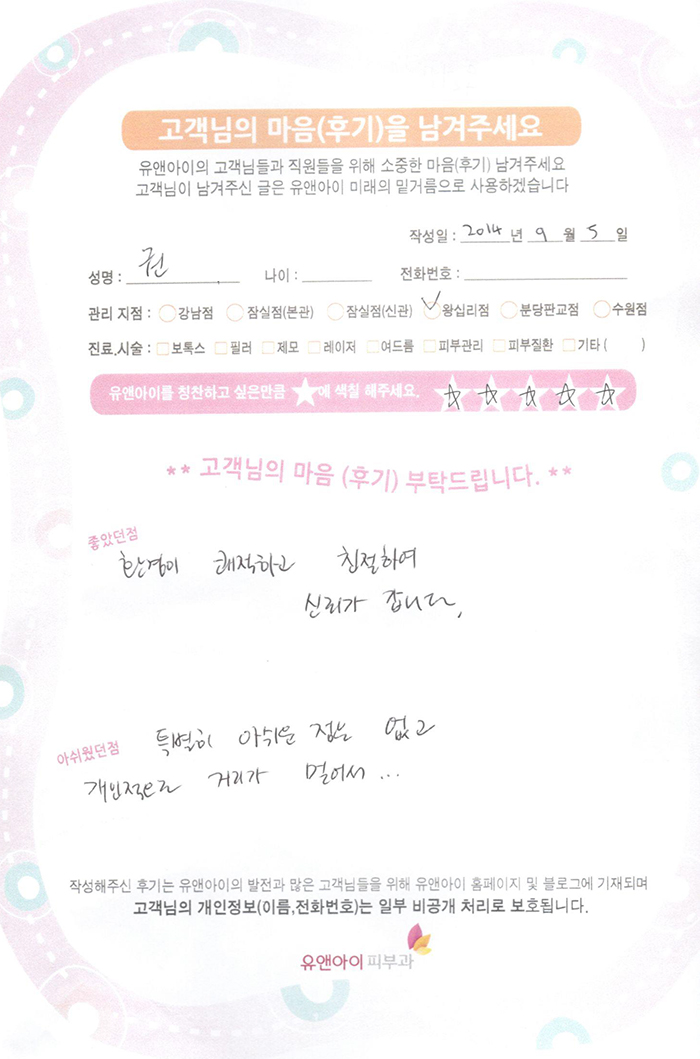 고객님의 마음(후기)을 남겨주세요
유앤아이의 고객님들과 직원들을 위해 소중한 마음(후기) 남겨주세요
고객님이 남겨주신 글은 유앤아이 미래의 밑거름으로 사용하겠습니다
작성일 : 2014 년 9 월 5 일
성명 : 권 나이 : 전화번호 :
관리 지점 : 강남점 잠실점(본관) 잠실점(신관) 왕십리점 분당판교점 수원점
진료,시술 : 보톡스 필러 제모 레이저 여드름 피부관리 피부질환 기타 ( )
유앤아이를 칭찬하고 싶은만큼 ★에 색칠 해주세요. ☆ ☆ ☆ ☆ ☆
** 고객님의 마음 (후기) 부탁드립니다. **
좋았던점
환경이 쾌적하고 친절하여
신뢰가 갑니다.
아쉬웠던점
특별히 아쉬운 점는 없고
개인적으로 거리가 멀어서 ...
작성해주신 후기는 유앤아이의 발전과 많은 고객님들을 위해 유앤아이 홈페이지 및 블로그에 기재되며
고객님의 개인정보(이름,전화번호)는 일부 비공개 처리로 보호됩니다.
유앤아이 피부과